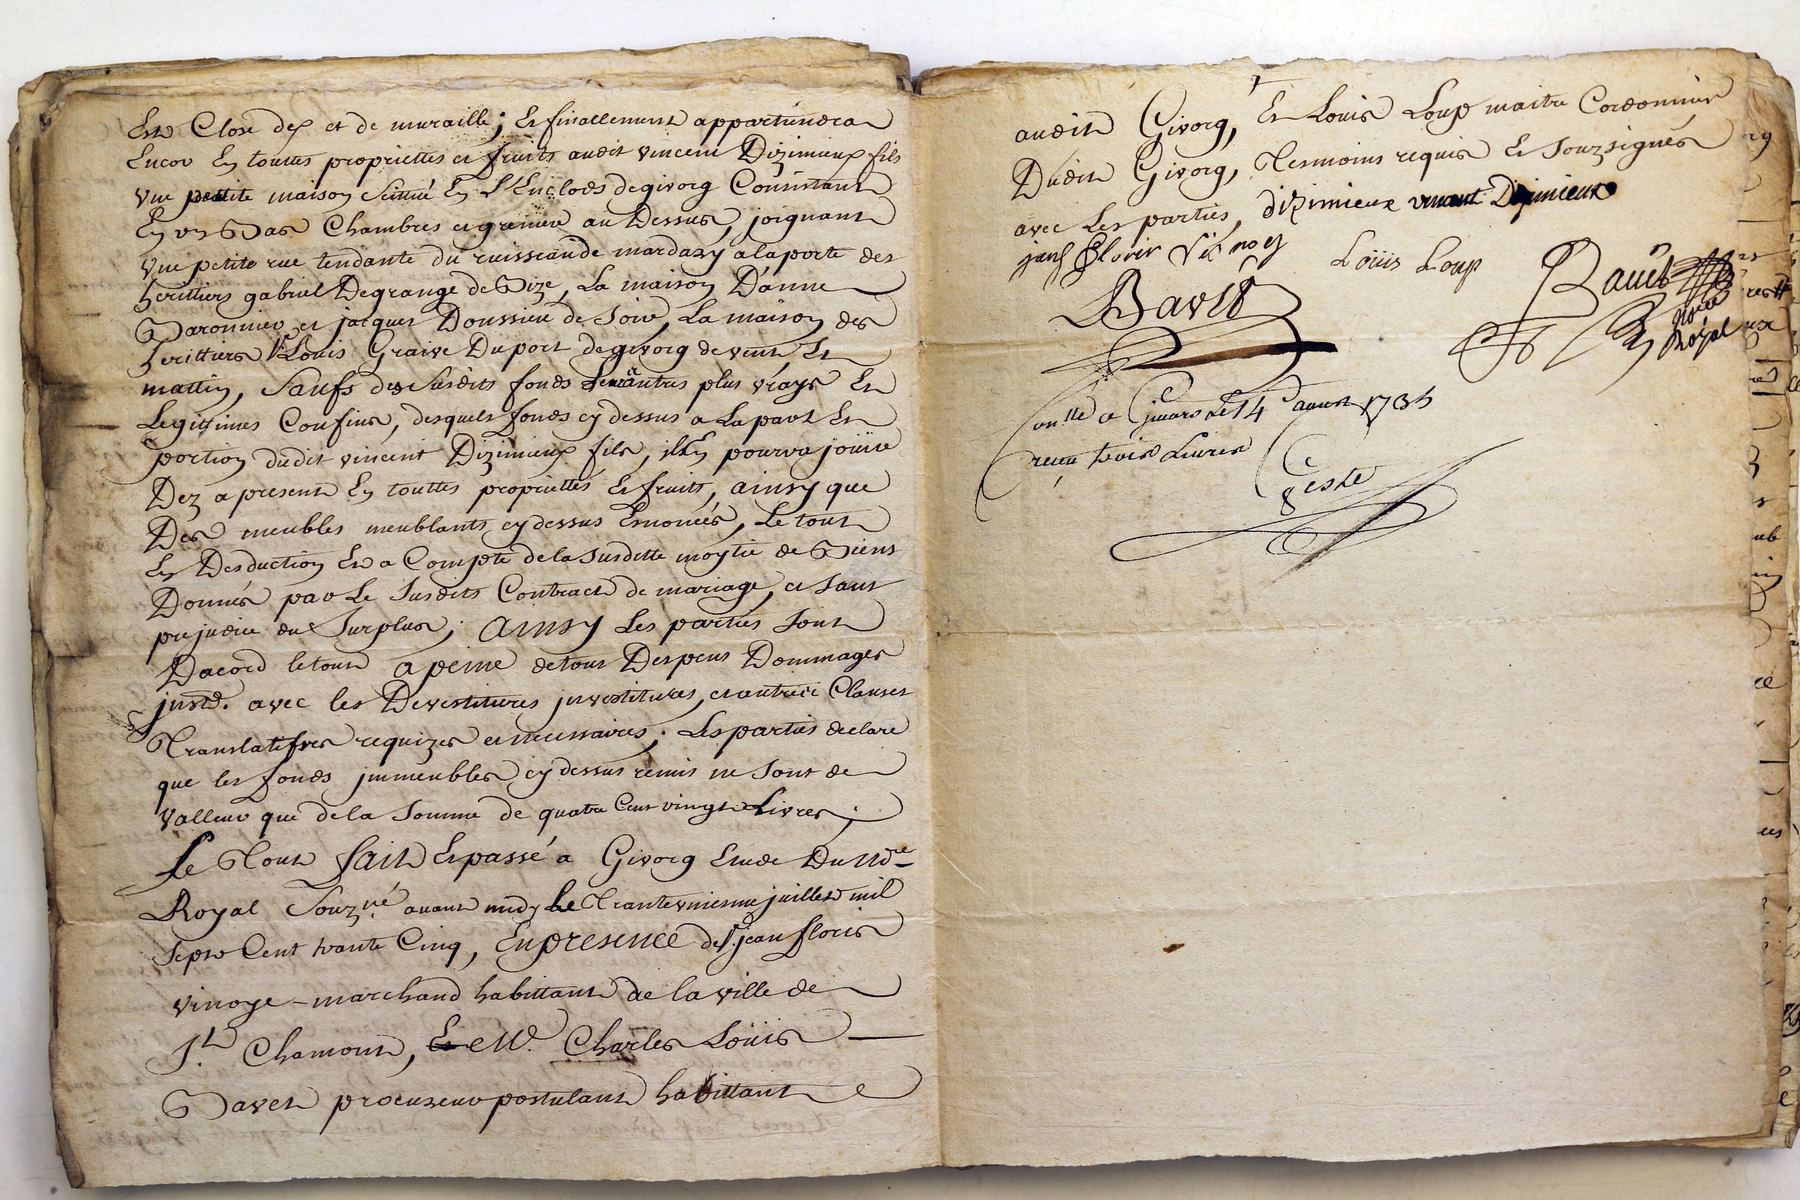 Est Close dez et de muraille; Et finallement appartiendra
Encor En touttes propriettes et fruits audit vincent Dizimieux fils
Une petitte maison Scittué En L'Enclods degivorg Consistant
En un Bas Chambres et grenier au Dessus, joignant
Une petite rue tendante du ruisseau de mardazy a la porte des
heritiers gabriel Degrange de Bize, La maison D'anne
Baronnier et jacques Doussieu de Soir, La maison des
heritiers Sr Louis Graive Du port de givorg de vent Et
mattin, Saufs des Susdits fonds Leurs autres plus vrays Et
Legitimes Confins, desquels fonds cy dessus a La part Et
portion dudit vincent Dizimieux fils, il En pourra joüir
Dez a present En touttes propriettes Et fruits, ainsy que
Des meubles meublants cy dessus Enoncés, Le tout
En Desduction Et a Compte de la Susditte moytié de Biens
Donnés par Le Susdits Contract de mariage, et Sans
prejudice du Surplus; ainsy Les parties Sont
Dacord le tout a peine de tous Despens Dommages
jnstd. avec les Devestitures jnvestitures, et autres Clauses
Translatifves requizes et necessaires; Les parties declare
que les fonds jmmeubles cy dessus remis ne Sont de
Valleur que de la Somme de quatre Cent vingt Livres;
Le Tout fait Et passé a Givorg Etude Du Nore
Royal Souzné avant midy Le Trante unieme juillet mil
Sept Cent trante Cinq, En presence de Sr jean floris
vinoye marchand habittant de la ville de
St Chamont, Et Me. Charles Loüis
Bavet procureur postulant habittant
audit Givorg, Et Louis Loup maitre Cordonnier
Dudit Givorg, Tesmoins requis Et Souzsignés
avec Les parties, dizimieux vincent Dizimieux
jean Florir Vinoy Loüis Loup
Bavet Bauet
Nore
Royal
Conlle a Givors Le 14 aoust 1735
receu trois Livres
Geste